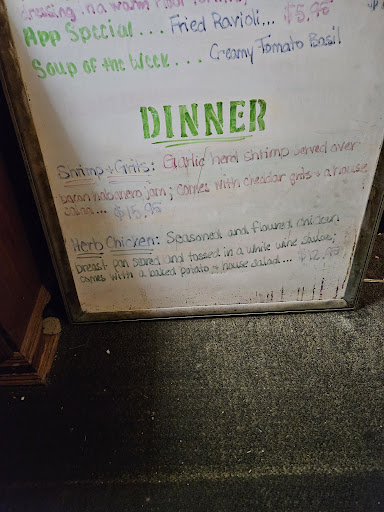 dressing in a warm
App Special... Fried Ravioli... $5.95
Soup of the Week... Creamy Tomato Basil
DINNER
Shrimp & Grits: Garlic herb shrimp served over
bacon habanero jam; comes with cheddar grits & a house
salad... $15.95
Herb Chicken: Seasoned and floured chicken
breast pan seared and tossed in a white wine sauce;
comes with a baked potato & house salad... $12.95